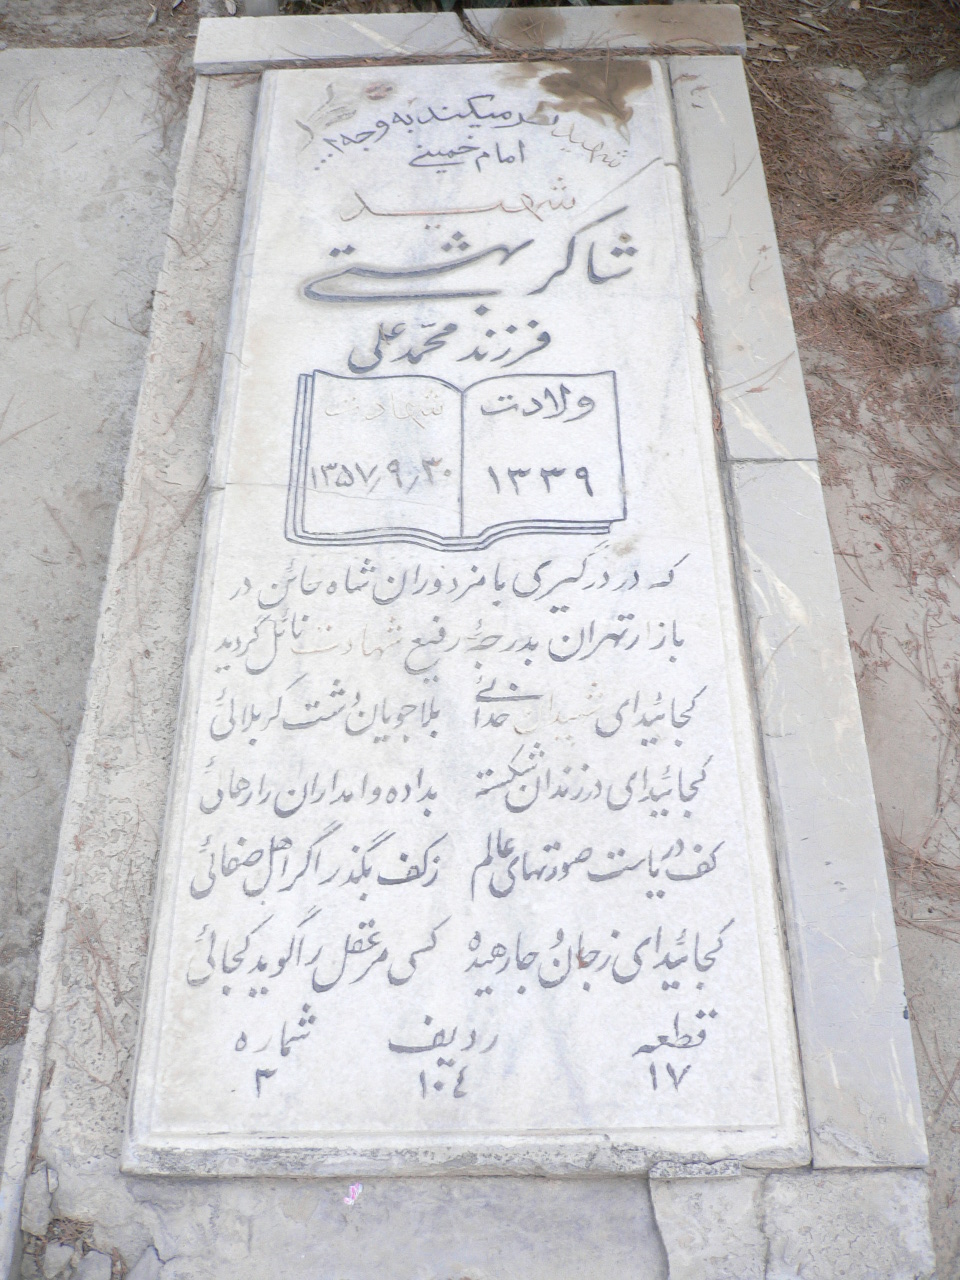 شهید نظر میکند به وجه ا...
امام خمینی
شهید
شاکر بهشتی
فرزند محمّد علی
ولادت شهادت
۱۳۳۹ ۱۳۵۷/۹/۳۰
که در درگیری با مزدوران شاه خائن در
بازار تهران بدرجۀ رفیع شهادت نائل گردید
کجائید ای شهیدان خدائی بلا جویان دشت کربلائی
کجائید ای در زندان شکسته بداده وامداران را رهائی
کف دریاست صورتهای عالم ز کف بگذر اگر اهل صفائی
کجائید ای ز جان و جا رهیده کسی مر عقل را گوید کجائی
قطعه ردیف شماره
۱۷ ۱۰٤ ۳